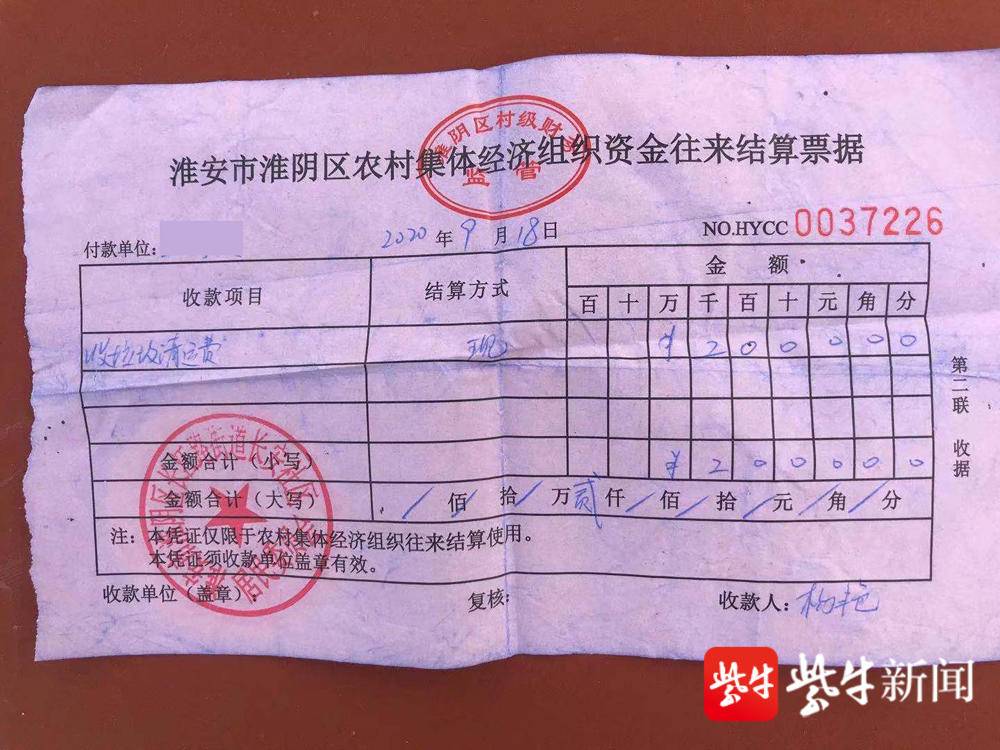 淮阴区村级财务
监管
淮安市淮阴区农村集体经济组织资金往来结算票据
付款单位: 2020年9月18日 NO.HYCC 0037226
收款项目 结算方式 金额
百 十 万 千 百 十 元 角 分
收垃圾清运费 现 ¥ 2 0 0 0 0 0
金额合计（小写） ¥ 2 0 0 0 0 0
金额合计（大写） / 佰 / 拾 / 万 贰 仟 / 佰 / 拾 / 元 / 角 / 分
注：本凭证仅限于农村集体经济组织往来结算使用。
本凭证须收款单位盖章有效。
收款单位（盖章）： 复核： 收款人：
第二联 收据
居民委员会
紫牛 紫牛新闻